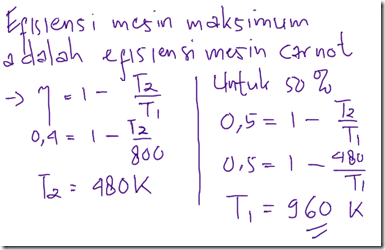 Efisiensi mesin maksimum
adalah efisiensi mesin carnot
→ η = 1 - T2/T1
0,4 = 1 - T2/800
T2 = 480K
Untuk 50 %
0,5 = 1 - T2/T1
0,5 = 1 - 480/T1
T1 = 960 K